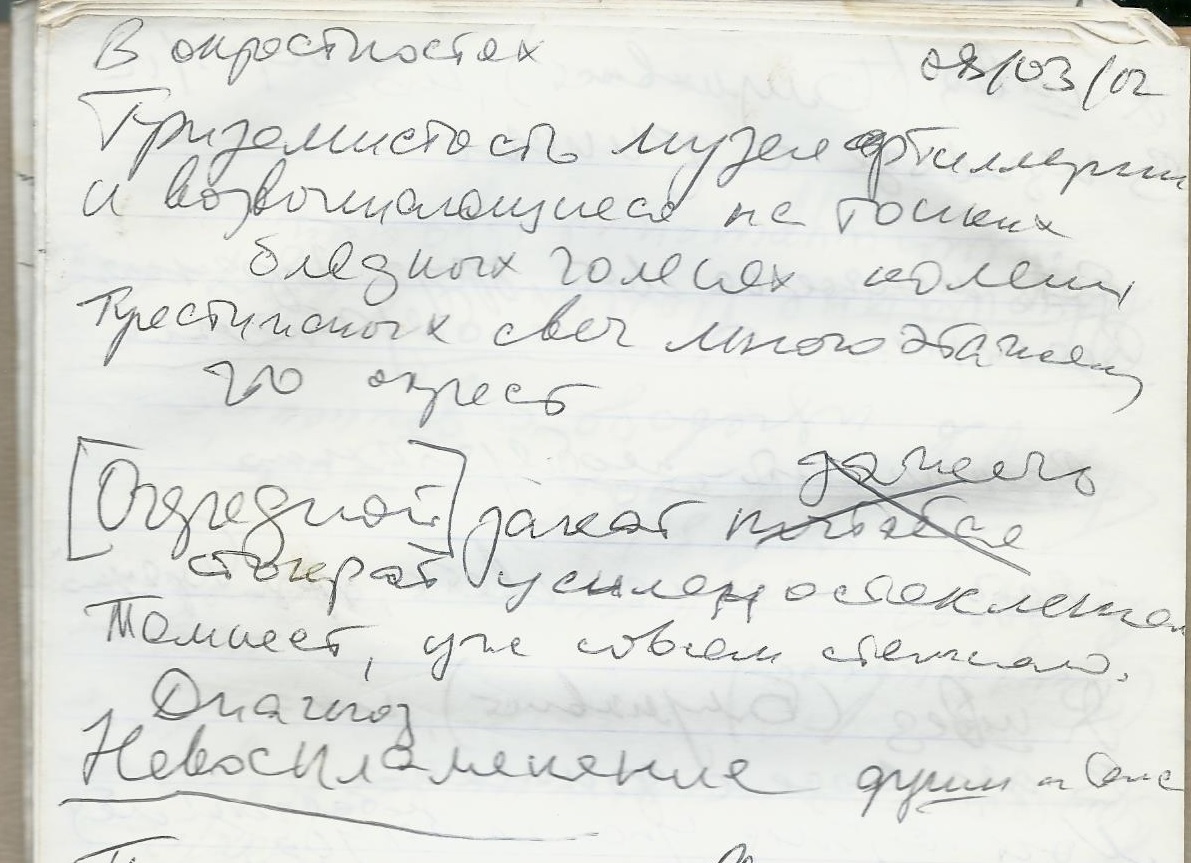 В окрестностях 08/03/02
Приземистость музея артиллерии
и возвышающиеся на тонких
бледных голенях колени
Крестинских свеч многоэтажных
окрест
[Очередной] закат
дожечь
стократ усилен остекленьем
Темнеет, уже совсем стемнело.
Диагноз
Невоспламенение души и